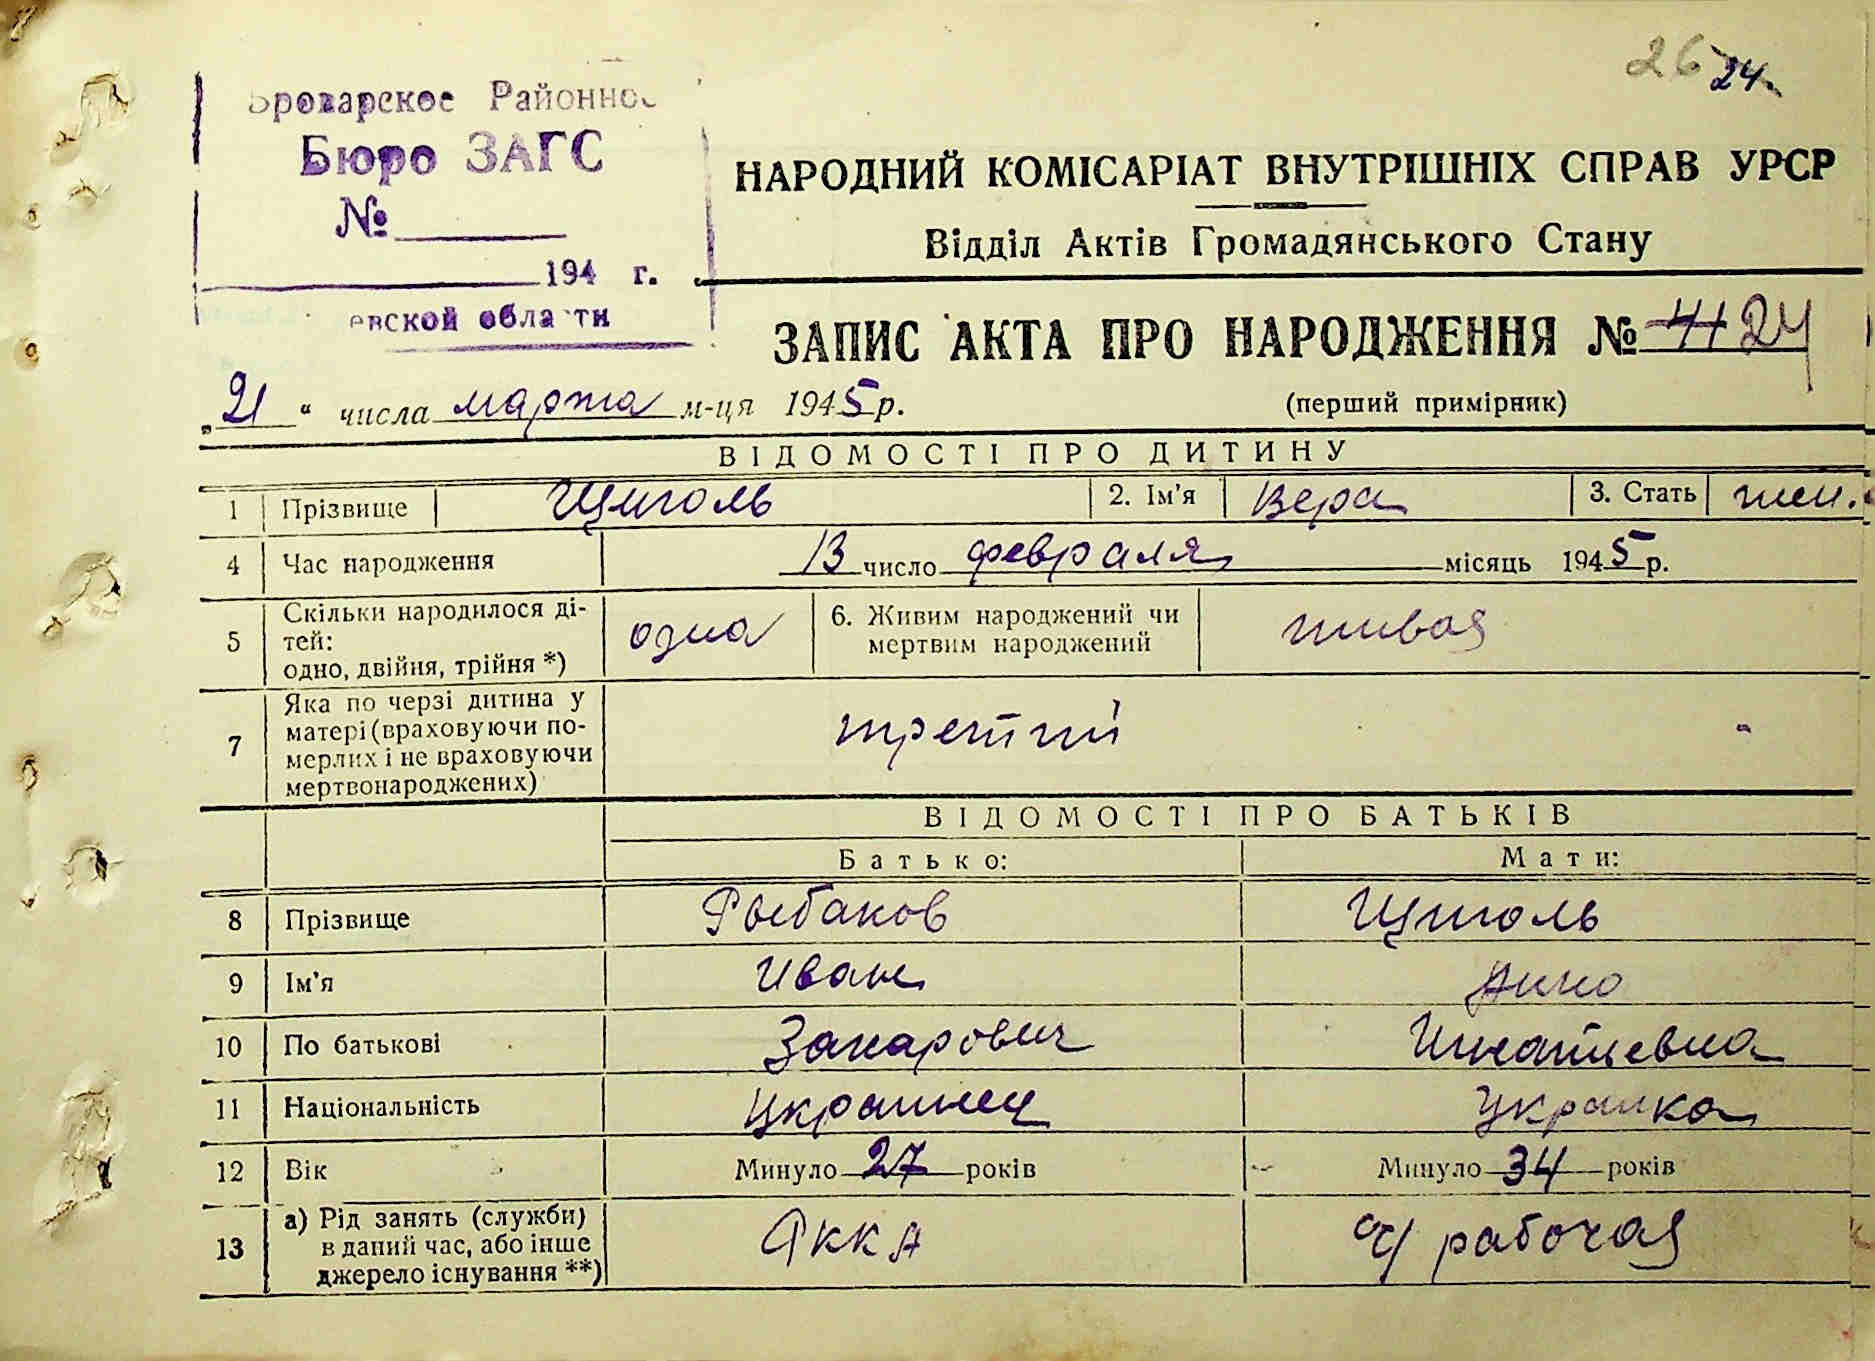 26 24
Броварское Районное
Бюро ЗАГС
№
194 г.
евской области
НАРОДНИЙ КОМІСАРІАТ ВНУТРІШНІХ СПРАВ УРСР
Відділ Актів Громадянського Стану
ЗАПИС АКТА ПРО НАРОДЖЕННЯ № 24
„21“ числа марта м-ця 1945 р.
(перший примірник)
ВІДОМОСТІ ПРО ДИТИНУ
1 Прізвище Щиголь 2. Ім'я Вера 3. Стать жен.
4 Час народження 13 число февраля місяць 1945 р.
5 Скільки народилося ді-
тей:
одно, двійня, трійня *) одна
6. Живим народжений чи
мертвим народжений живая
7 Яка по черзі дитина у
матері (враховуючи по-
мерлих і не враховуючи
мертвонароджених) третий
ВІДОМОСТІ ПРО БАТЬКІВ
Батько: Мати:
8 Прізвище Рыбаков Щиголь
9 Ім'я Иван Анна
10 По батькові Захарович Игнатьевна
11 Національність Украинец Украинка
12 Вік Минуло 27 років Минуло 34 років
13 а) Рід занять (служби)
в даний час, або інше
джерело існування **) РККА рабочая